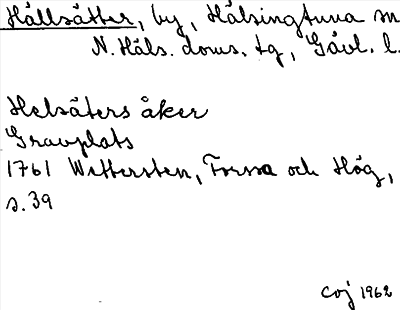 Hällsätter, by, Hälsingtuna sn
N. Häls. doms. tg, Gävl. l.
Helsäters åker
Gravplats
1761 Wettersten, Forssa och Hög,
s. 39
CoJ 1962